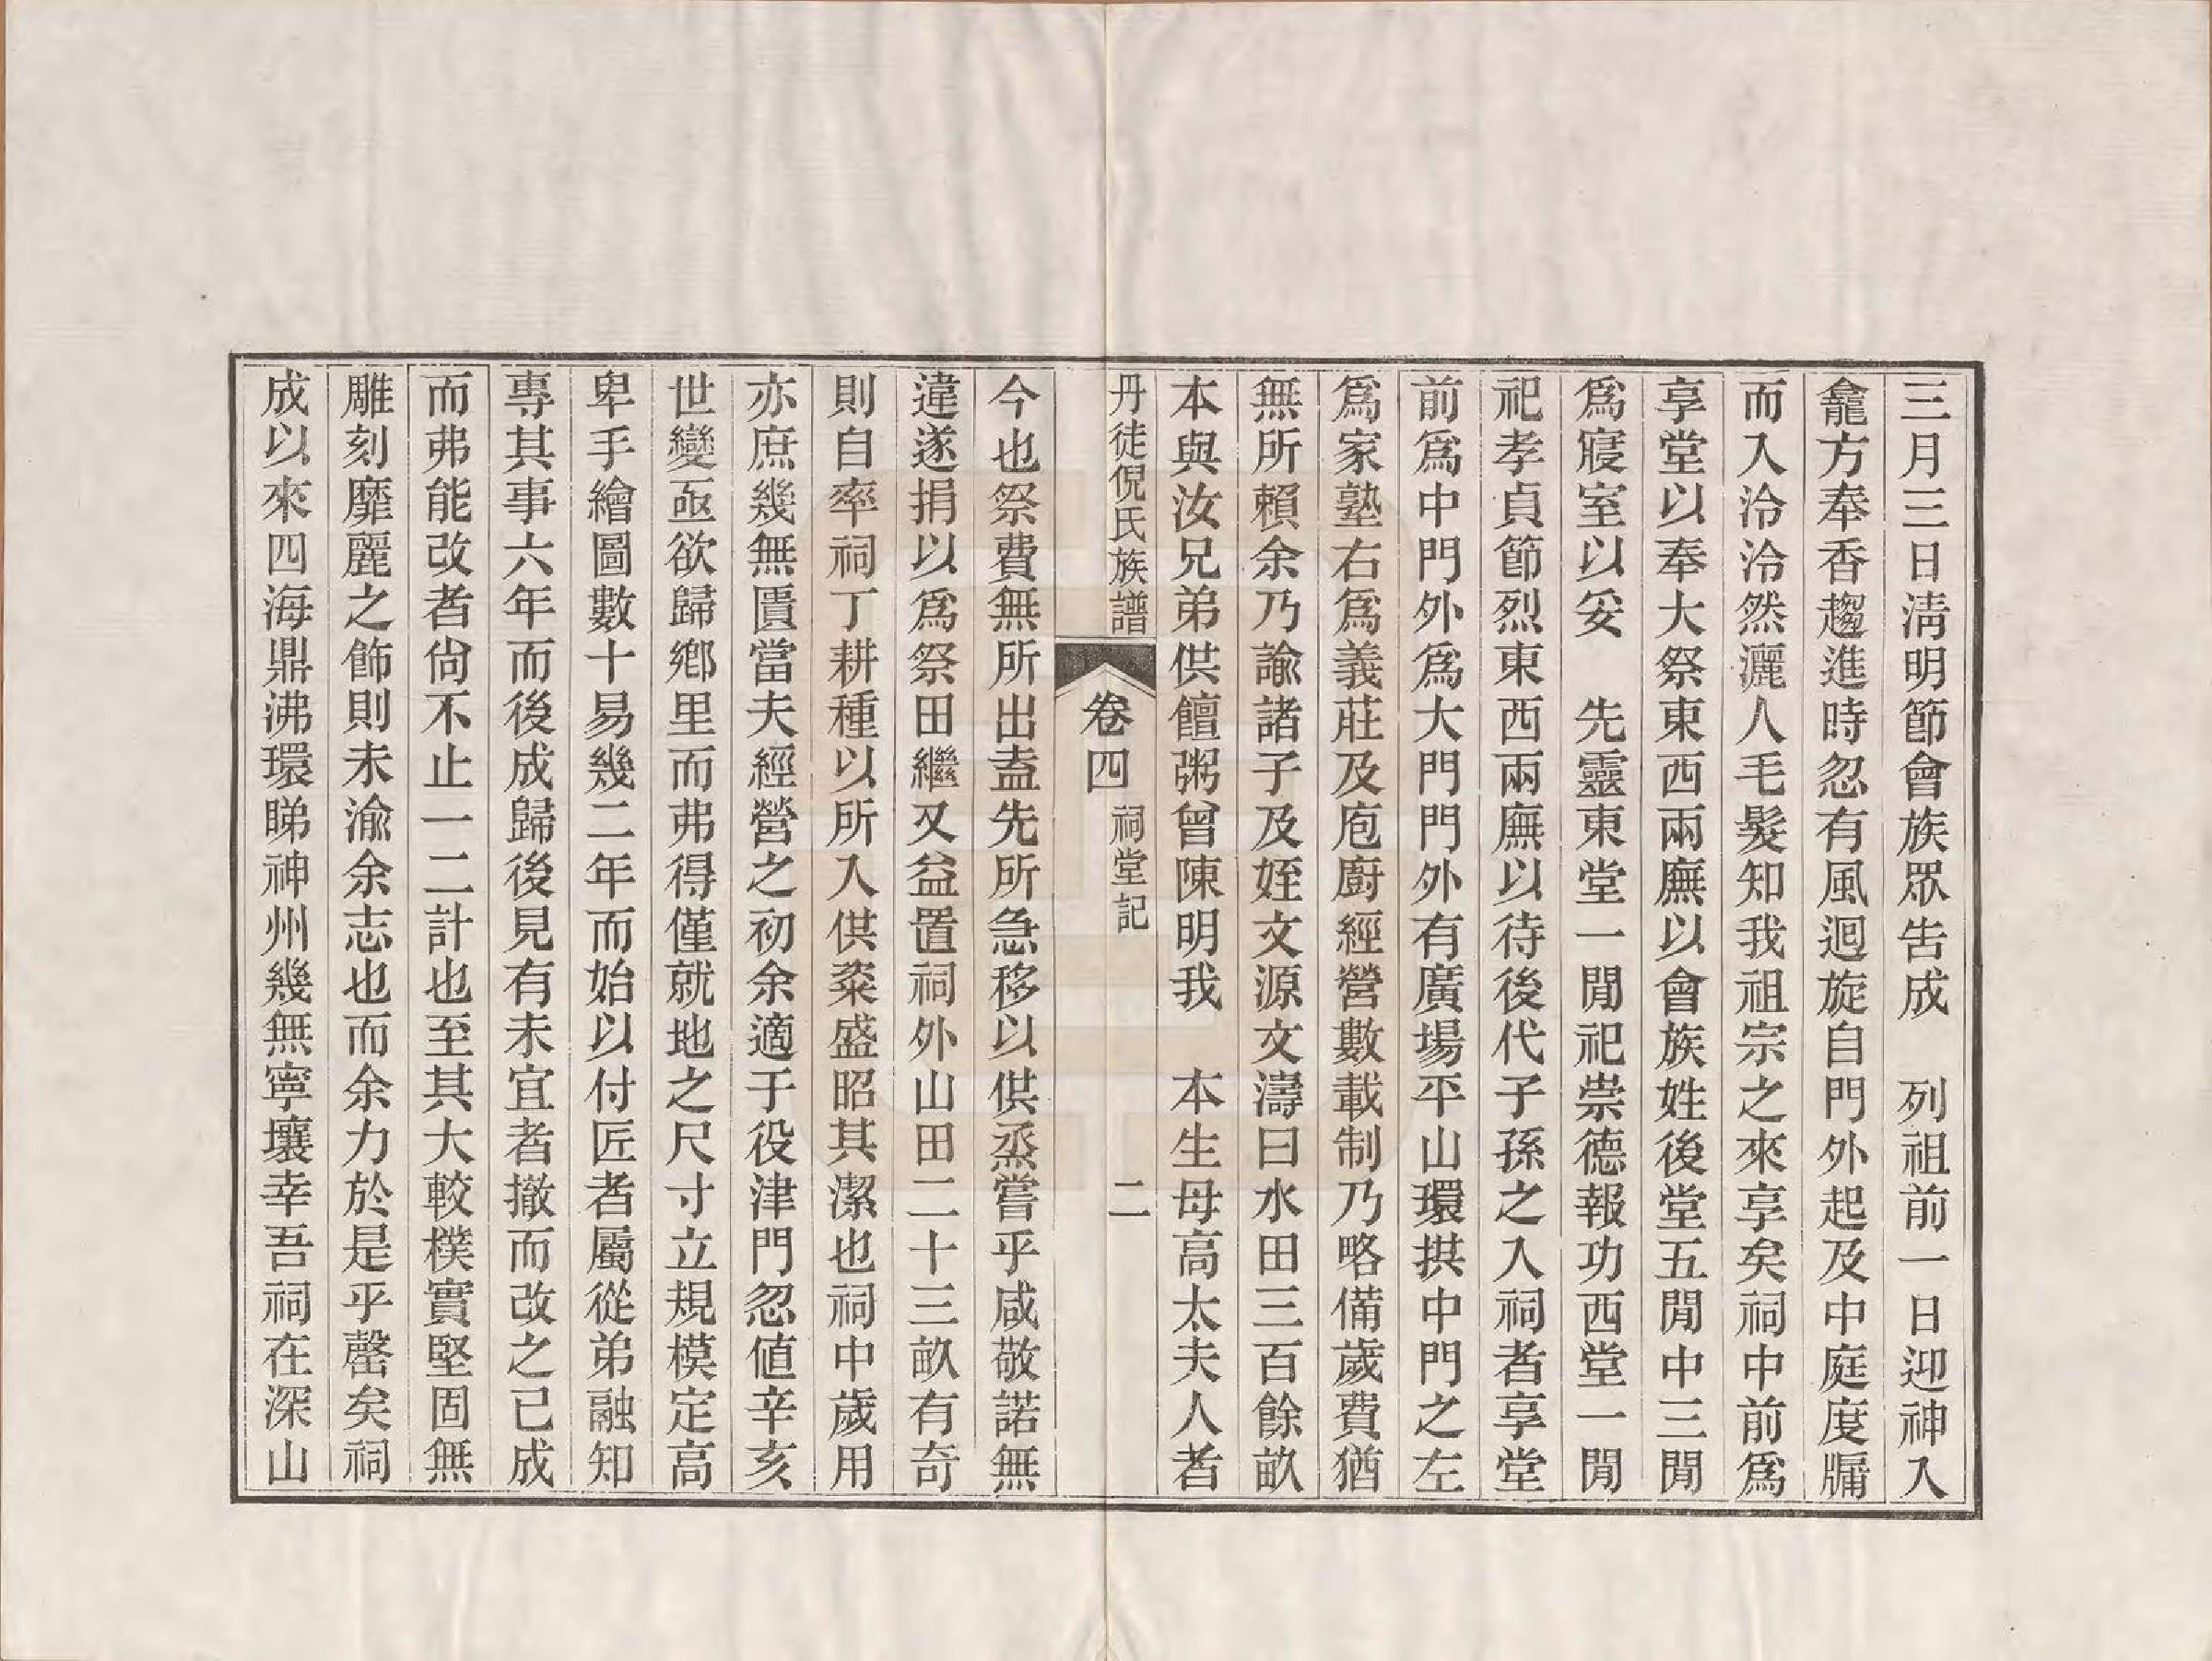 三月三日淸明節會族眾告成　列祖前一日迎神入
龕方奉香趨進時忽有風迴旋自門外起及中庭度牖
而入泠泠然灑人毛髮知我祖宗之來享矣祠中前爲
享堂以奉大祭東西兩廡以會族姓後堂五閒中三閒
爲寢室以妥　先靈東堂一閒祀崇德報功西堂一閒
祀孝貞節烈東西兩廡以待後代子孫之入祠者享堂
前爲中門外爲大門門外有廣場平山環拱中門之左
爲家塾右爲義莊及庖廚經營數載制乃略備歲費猶
無所賴余乃諭諸子及姪文源文濤曰水田三百餘畝
本與汝兄弟供饘粥曾陳明我　本生母高太夫人者
丹徒倪氏族譜
卷四
祠堂記
二
今也祭費無所出盍先所急移以供烝嘗乎咸敬諾無
違遂捐以爲祭田繼又益置祠外山田二十三畝有奇
則自率祠丁耕種以所入供粢盛昭其潔也祠中歲用
亦庶幾無匱當夫經營之初余適于役津門忽値辛亥
世變亟欲歸鄉里而弗得僅就地之尺寸立規模定高
卑手繪圖數十易幾二年而始以付匠者屬從弟融知
專其事六年而後成歸後見有未宜者撤而改之已成
而弗能改者尙不止一二計也至其大較樸實堅固無
雕刻靡麗之飾則未渝余志也而余力於是乎罄矣祠
成以來四海鼎沸環睇神州幾無寧壤幸吾祠在深山